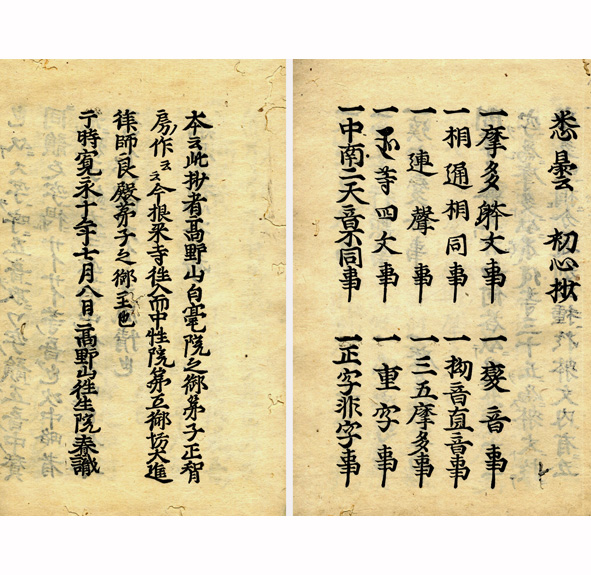 悉曇 初心抄
一摩多躰文事 一變音事
一相通相同事 一拗音直音事
一連聲事 一三五摩多事
一 等四文事 一重字事
一中南二天音不同事 一正字非字事
本云此抄者髙野山白毫院之御弟子正智
房作云云今根来寺住人而中性院第五御坊大進
律師良殿弟子之御 也
于時寛永十年七月八日 髙野山往生院春識